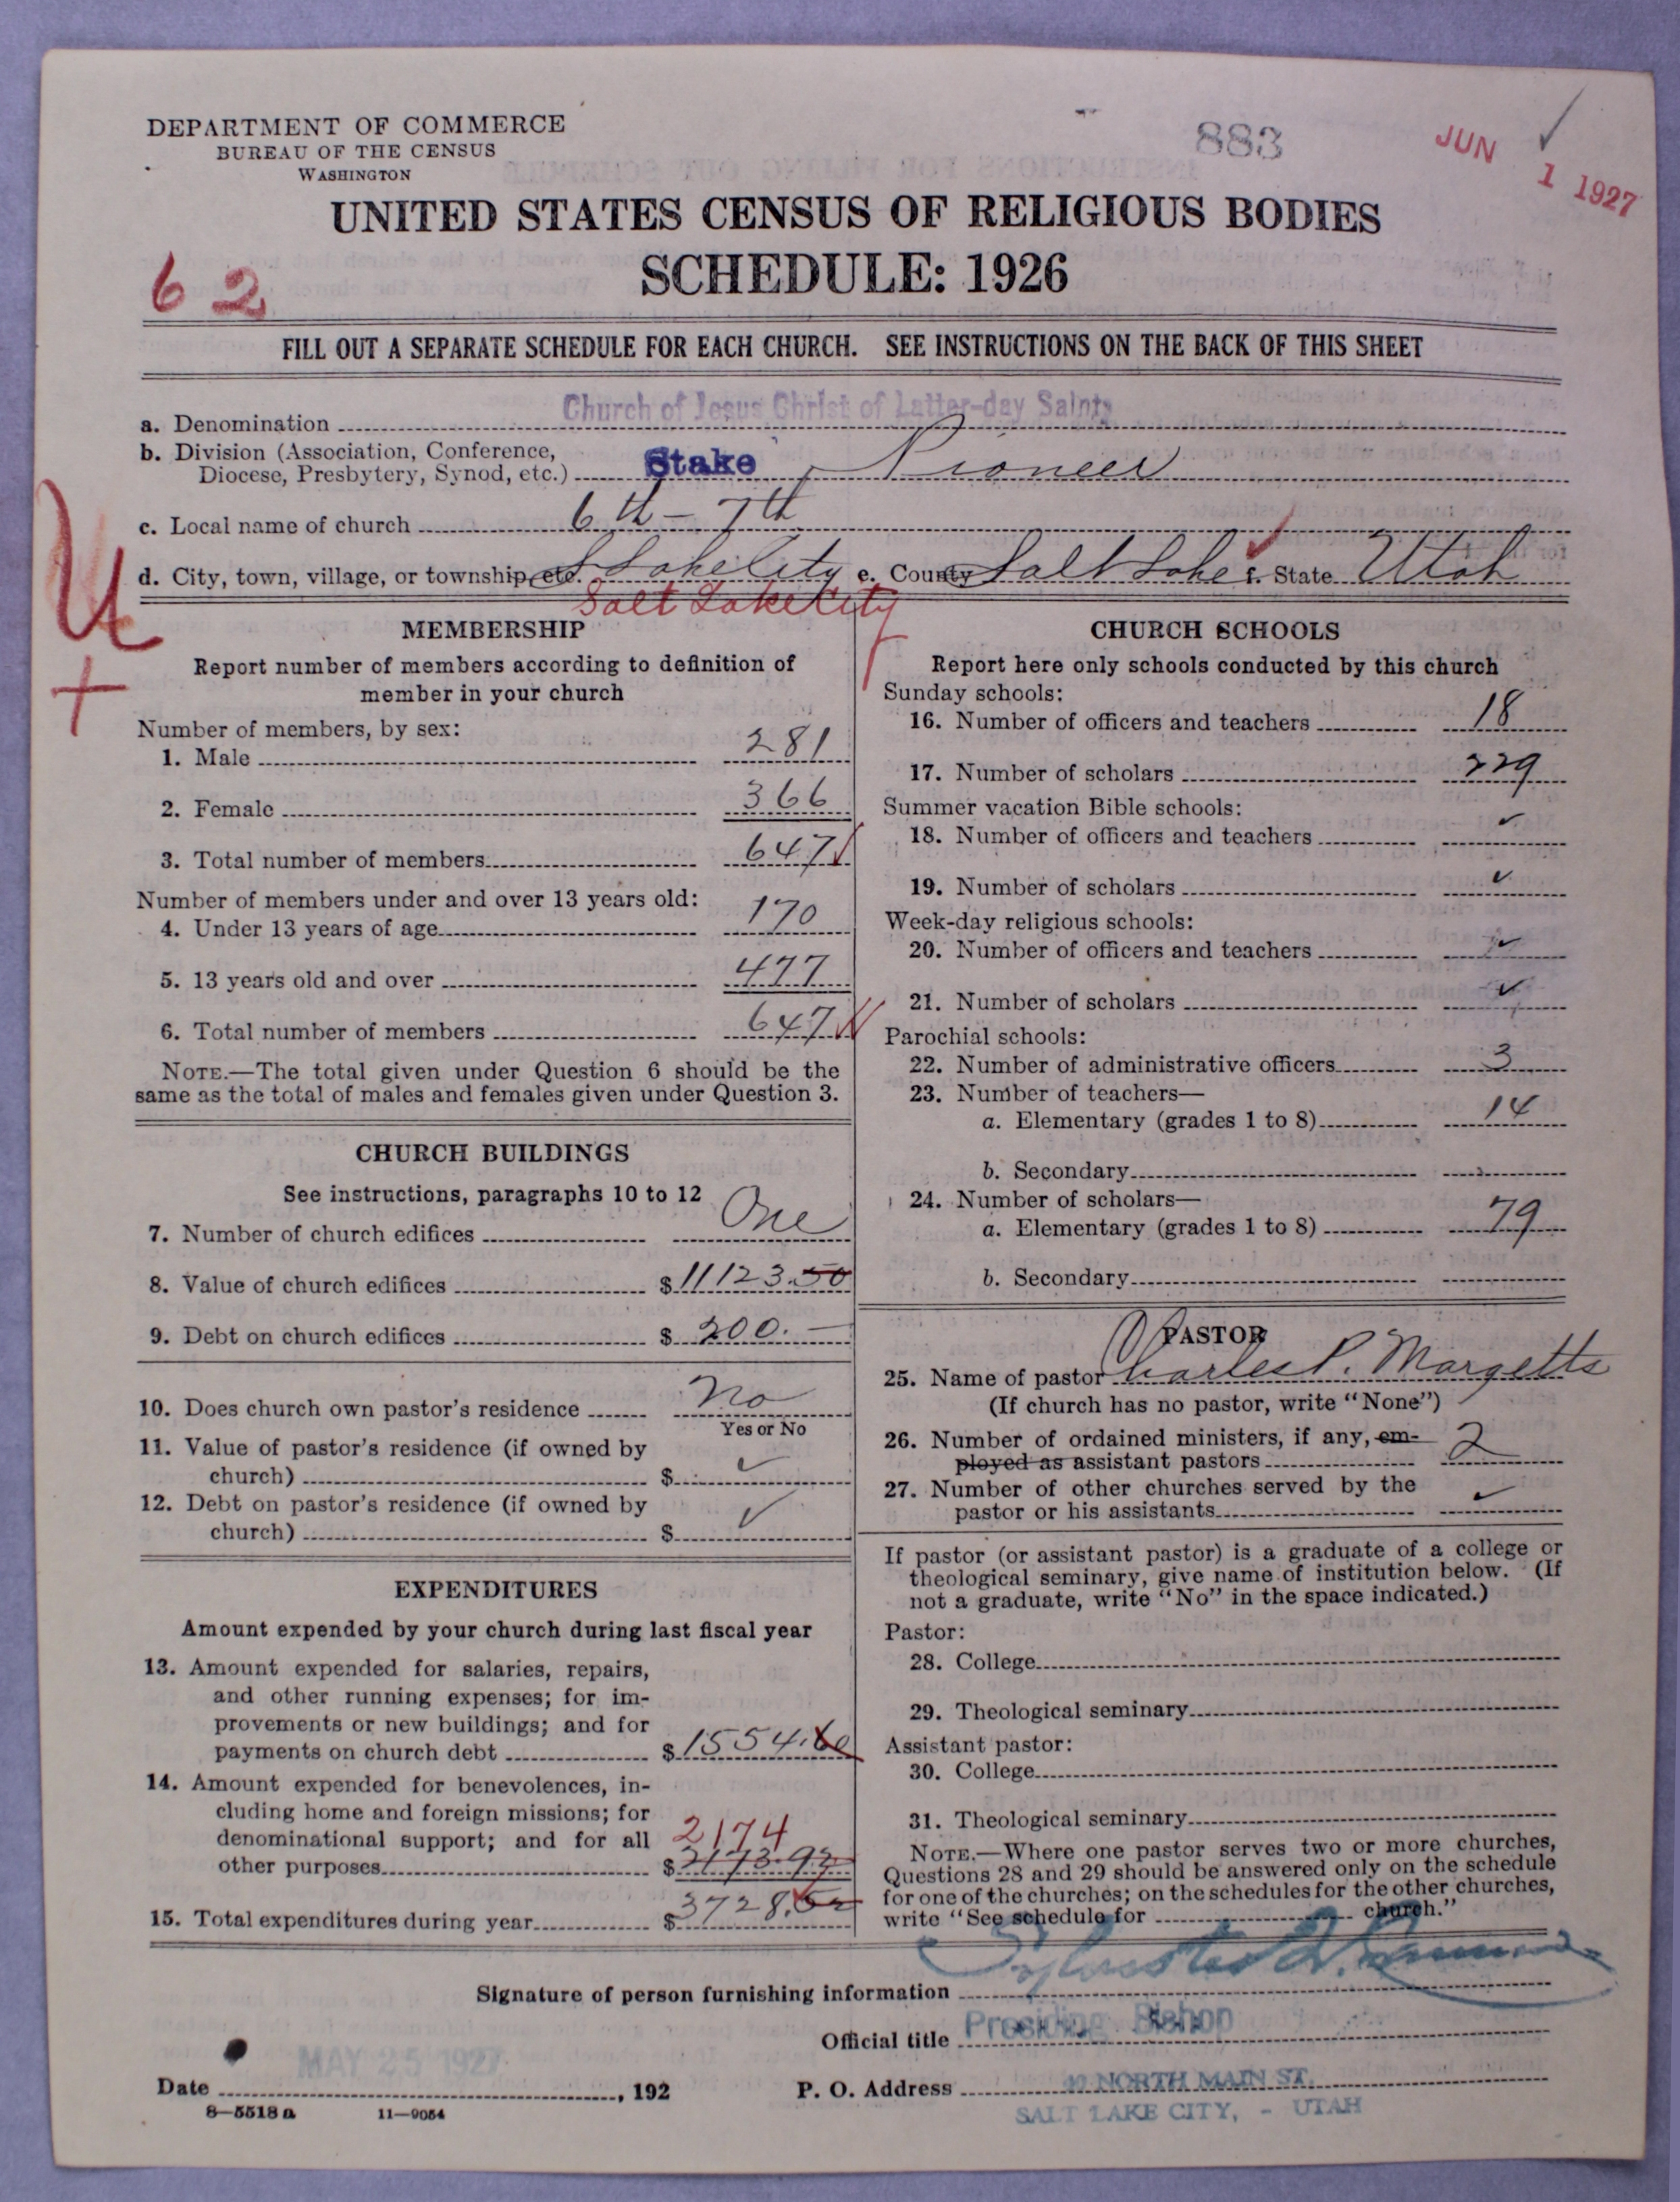 DEPARTMENT OF COMMERCE
BUREAU OF THE CENSUS
WASHINGTON
883
JUN 1 1927
UNITED STATES CENSUS OF RELIGIOUS BODIES
SCHEDULE: 1926
62
FILL OUT A SEPARATE SCHEDULE FOR EACH CHURCH. SEE INSTRUCTIONS ON THE BACK OF THIS SHEET
a. Denomination Church of Jesus Christ of Latter-day Saints
b. Division (Association, Conference,
Diocese, Presbytery, Synod, etc.) Stake Pioneer
c. Local name of church 6th - 7th
d. City, town, village, or township, etc. S Lake City e. County Salt Lake f. State Utah
Salt Lake City
MEMBERSHIP
Report number of members according to definition of
member in your church
Number of members, by sex:
1. Male 281
2. Female 366
3. Total number of members 647
Number of members under and over 13 years old:
4. Under 13 years of age 170
5. 13 years old and over 477
6. Total number of members 647
NOTE.—The total given under Question 6 should be the
same as the total of males and females given under Question 3.
CHURCH BUILDINGS
See instructions, paragraphs 10 to 12
7. Number of church edifices One
8. Value of church edifices $ 11123.50
9. Debt on church edifices $ 200.—
10. Does church own pastor's residence No
Yes or No
11. Value of pastor's residence (if owned by
church) $ ✓
12. Debt on pastor's residence (if owned by
church) $ ✓
EXPENDITURES
Amount expended by your church during last fiscal year
13. Amount expended for salaries, repairs,
and other running expenses; for im-
provements or new buildings; and for
payments on church debt $ 1554.60
14. Amount expended for benevolences, in-
cluding home and foreign missions; for
denominational support; and for all
2174
other purposes $ 2173.92
15. Total expenditures during year $ 3728.52
CHURCH SCHOOLS
Report here only schools conducted by this church
Sunday schools:
16. Number of officers and teachers 18
17. Number of scholars 229
Summer vacation Bible schools:
18. Number of officers and teachers ✓
19. Number of scholars ✓
Week-day religious schools:
20. Number of officers and teachers ✓
21. Number of scholars ✓
Parochial schools:
22. Number of administrative officers 3
23. Number of teachers—
a. Elementary (grades 1 to 8) 14
b. Secondary
24. Number of scholars—
a. Elementary (grades 1 to 8) 79
b. Secondary
PASTOR
25. Name of pastor Charles P. Margetts
(If church has no pastor, write "None")
26. Number of ordained ministers, if any, em-
ployed as assistant pastors 2
27. Number of other churches served by the
pastor or his assistants ✓
If pastor (or assistant pastor) is a graduate of a college or
theological seminary, give name of institution below. (If
not a graduate, write "No" in the space indicated.)
Pastor:
28. College
29. Theological seminary
Assistant pastor:
30. College
31. Theological seminary
NOTE.—Where one pastor serves two or more churches,
Questions 28 and 29 should be answered only on the schedule
for one of the churches; on the schedules for the other churches,
write "See schedule for church."
Signature of person furnishing information Sylvester Q. Cannon
Official title Presiding Bishop
Date MAY 25 1927, 192
P. O. Address 40 NORTH MAIN ST.
SALT LAKE CITY, - UTAH
8—5518 a 11—9054